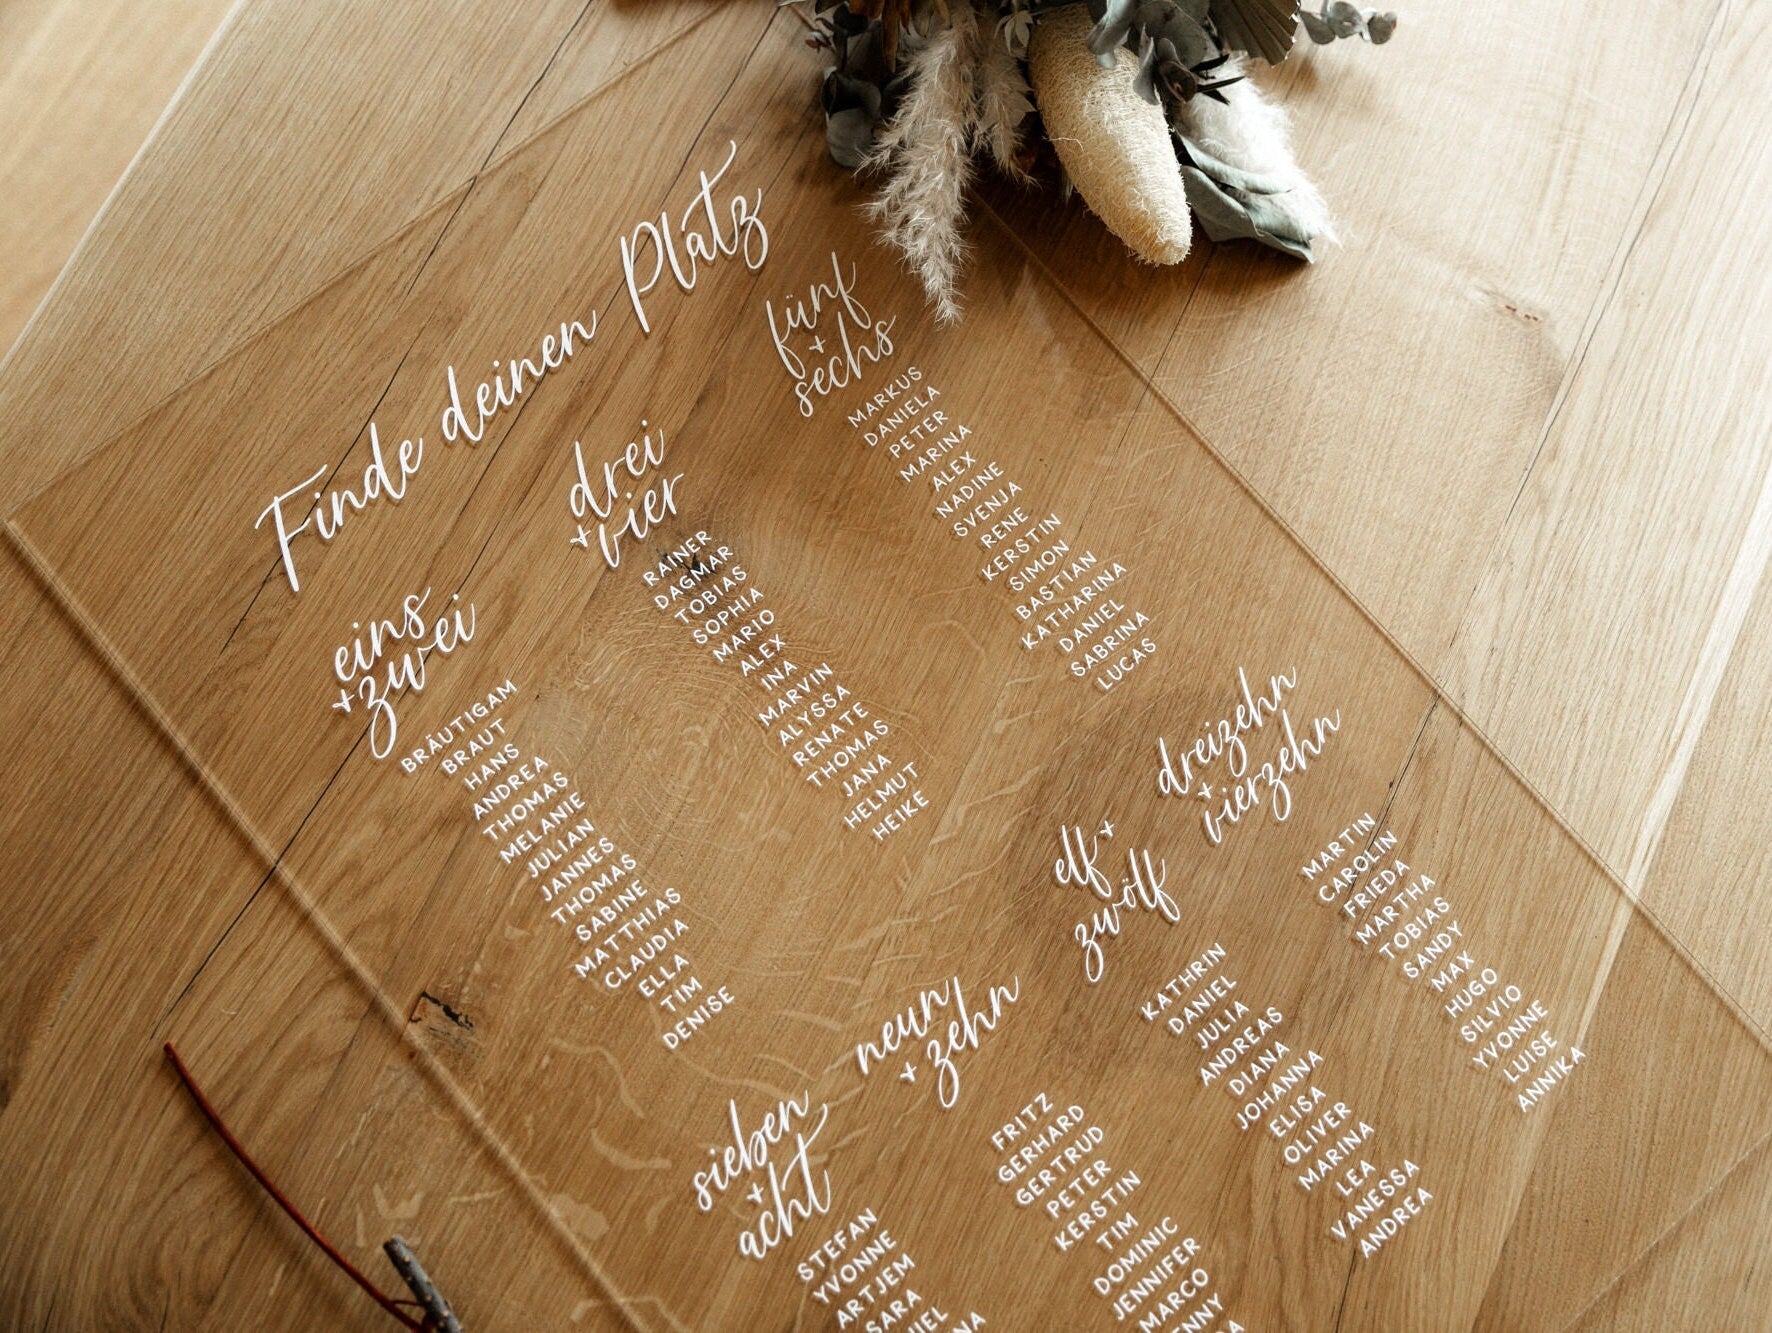 Finde deinen Platz
eins
+zwei
BRÄUTIGAM
BRAUT
HANS
ANDREA
THOMAS
MELANIE
JULIAN
JANNES
THOMAS
SABINE
MATTHIAS
CLAUDIA
ELLA
TIM
DENISE
drei
+vier
RAINER
DAGMAR
TOBIAS
SOPHIA
MARIO
ALEX
INA
MARVIN
ALYSSA
RENATE
THOMAS
JANA
HELMUT
HEIKE
fünf
+
sechs
MARKUS
DANIELA
PETER
MARINA
ALEX
NADINE
SVENJA
RENE
KERSTIN
SIMON
BASTIAN
KATHARINA
DANIEL
SABRINA
LUCAS
sieben
+
acht
STEFAN
YVONNE
ARTJEM
SARA
neun
+ zehn
FRITZ
GERHARD
GERTRUD
PETER
KERSTIN
TIM
DOMINIC
JENNIFER
MARCO
elf +
zwölf
KATHRIN
DANIEL
JULIA
ANDREAS
DIANA
JOHANNA
ELISA
OLIVER
MARINA
LEA
VANESSA
ANDREA
dreizehn
+
vierzehn
MARTIN
CAROLIN
FRIEDA
MARTHA
TOBIAS
SANDY
MAX
HUGO
SILVIO
YVONNE
LUISE
ANNIKA